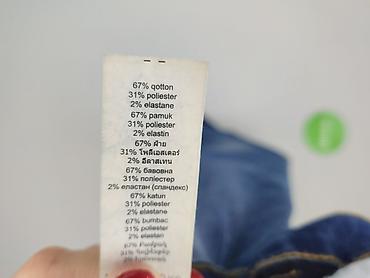 67% qotton
31% poliester
2% elastane
67% pamuk
31% poliester
2% elastin
67% ฝ้าย
31% โพลีเอสเตอร์
2% อีลาสเทน
67% бавовна
31% поліестер
2% еластан (спандекс)
67% katun
31% poliester
2% elastane
67% bumbac
31% poliester
2% elastan
67%
31%
2%